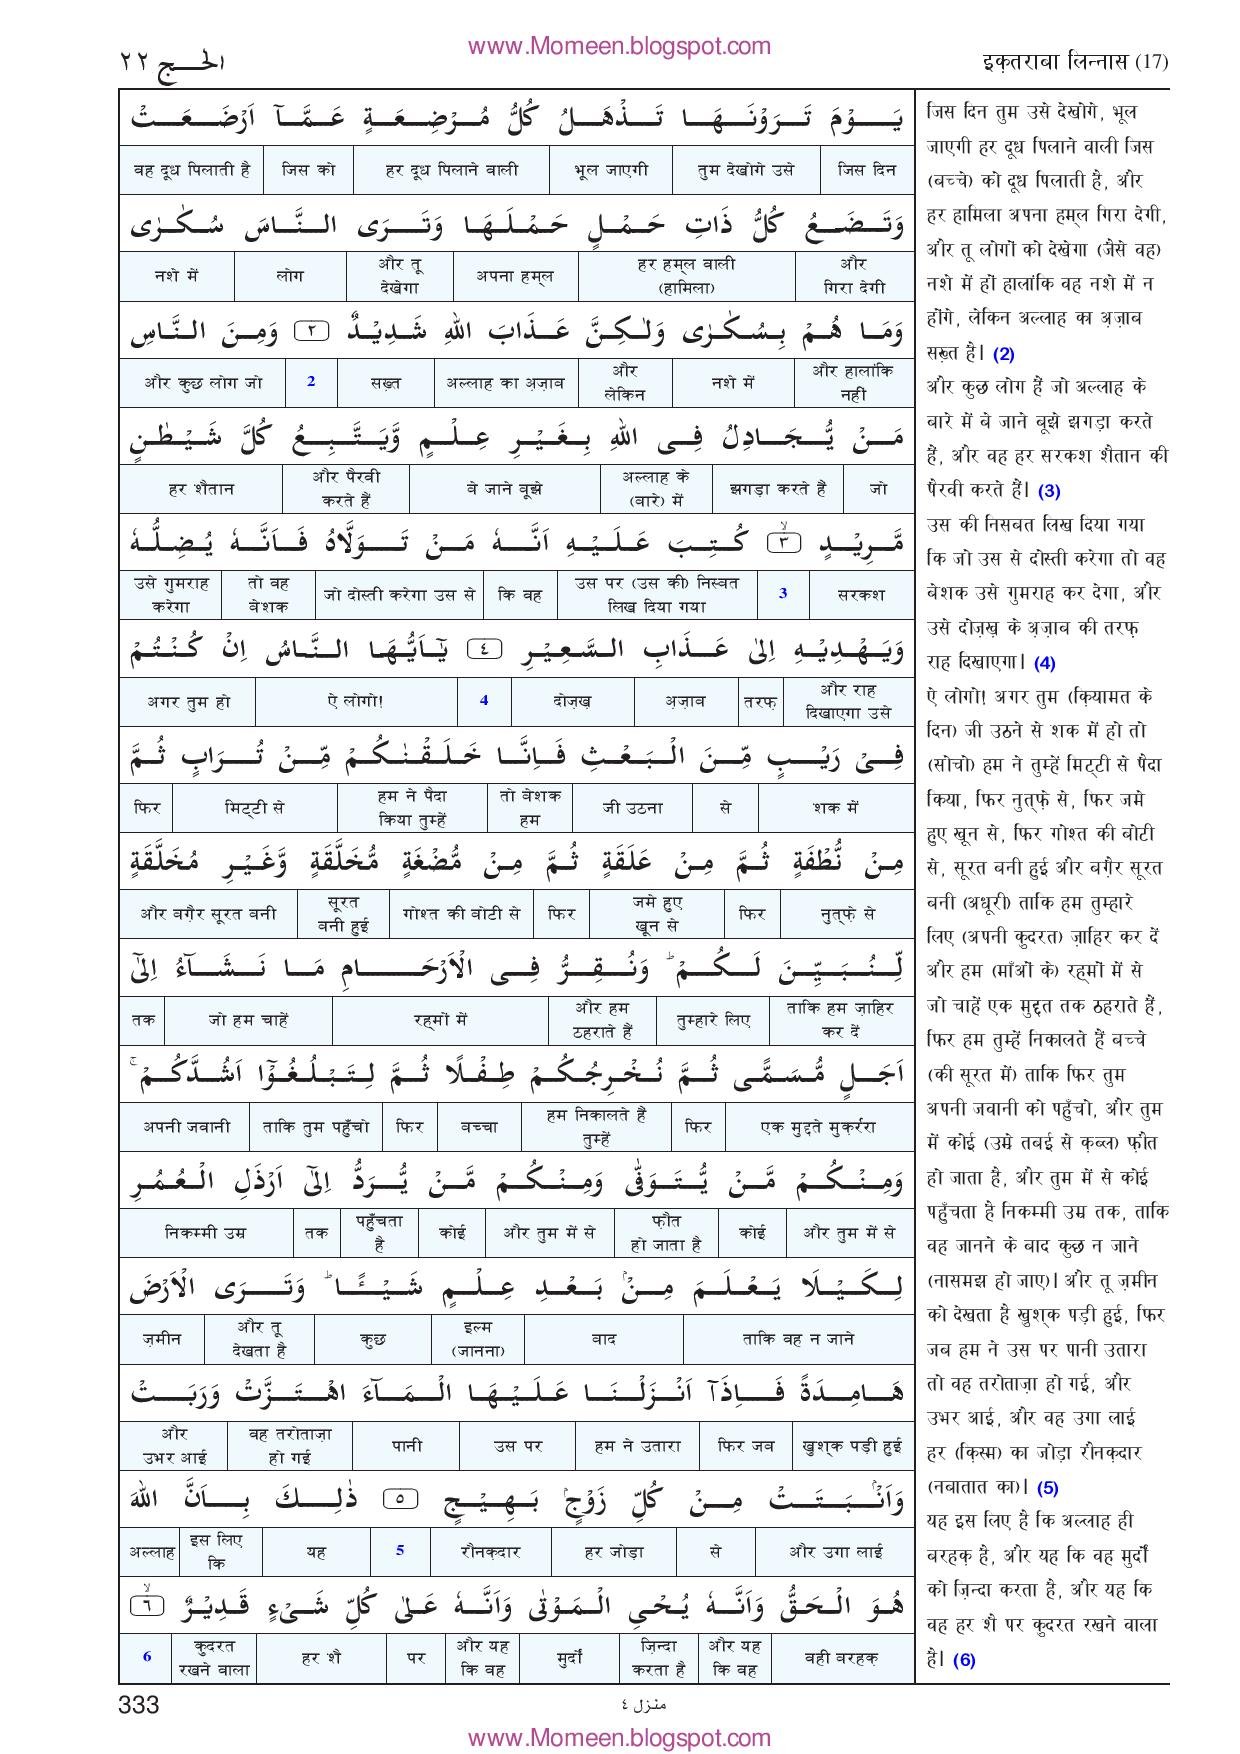 www.Momeen.blogspot.com
الحـــج ٢٢
इक़तराबा लिन्नास (17)
يَوْمَ تَرَوْنَهَا تَذْهَلُ كُلُّ مُرْضِعَةٍ عَمَّآ اَرْضَعَتْ
जिस दिन तुम देखोगे उसे भूल जाएगी हर दूध पिलाने वाली जिस को वह दूध पिलाती है
وَتَضَعُ كُلُّ ذَاتِ حَمْلٍ حَمْلَهَا وَتَرَى النَّاسَ سُكٰرٰى
और गिरा देगी हर हम्ल वाली (हामिला) अपना हम्ल और तू देखेगा लोग नशे में
وَمَا هُمْ بِسُكٰرٰى وَلٰكِنَّ عَذَابَ اللهِ شَدِيْدٌ ٢ وَمِنَ النَّاسِ
और हालांकि नहीं नशे में और लेकिन अल्लाह का अ़ज़ाब सख़्त 2 और कुछ लोग जो
مَنْ يُّجَادِلُ فِى اللهِ بِغَيْرِ عِلْمٍ وَّيَتَّبِعُ كُلَّ شَيْطٰنٍ
जो झगड़ा करते हैं अल्लाह के (बारे) में बे जाने बूझे और पैरवी करते हैं हर शैतान
مَّرِيْدٍ ٣ كُتِبَ عَلَيْهِ اَنَّهٗ مَنْ تَوَلَّاهُ فَاَنَّهٗ يُضِلُّهٗ
सरकश 3 उस पर (उस की) निस्बत लिख दिया गया कि वह जो दोस्ती करेगा उस से तो वह बेशक उसे गुमराह करेगा
وَيَهْدِيْهِ اِلٰى عَذَابِ السَّعِيْرِ ٤ يٰٓاَيُّهَا النَّاسُ اِنْ كُنْتُمْ
और राह दिखाएगा उसे तरफ़ अ़ज़ाब दोज़ख़ 4 ऐ लोगो! अगर तुम हो
فِىْ رَيْبٍ مِّنَ الْبَعْثِ فَاِنَّا خَلَقْنٰكُمْ مِّنْ تُرَابٍ ثُمَّ
शक में से जी उठना तो बेशक हम हम ने पैदा किया तुम्हें मिट्टी से फिर
مِنْ نُّطْفَةٍ ثُمَّ مِنْ عَلَقَةٍ ثُمَّ مِنْ مُّضْغَةٍ مُّخَلَّقَةٍ وَّغَيْرِ مُخَلَّقَةٍ
नुत्फ़े से फिर जमे हुए खून से फिर गोश्त की बोटी से सूरत बनी हुई और बग़ैर सूरत बनी
لِّنُبَيِّنَ لَكُمْ ؕ وَنُقِرُّ فِى الْاَرْحَامِ مَا نَشَآءُ اِلٰٓى
ताकि हम ज़ाहिर कर दें तुम्हारे लिए और हम ठहराते हैं रह्मों में जो हम चाहें तक
اَجَلٍ مُّسَمًّى ثُمَّ نُخْرِجُكُمْ طِفْلًا ثُمَّ لِتَبْلُغُوْٓا اَشُدَّكُمْ ۚ
एक मुद्दते मुक़र्ररा फिर हम निकालते हैं तुम्हें बच्चा फिर ताकि तुम पहुँचो अपनी जवानी
وَمِنْكُمْ مَّنْ يُّتَوَفّٰى وَمِنْكُمْ مَّنْ يُّرَدُّ اِلٰٓى اَرْذَلِ الْعُمُرِ
और तुम में से कोई फ़ौत हो जाता है और तुम में से कोई पहुँचता है तक निकम्मी उम्र
لِكَيْلَا يَعْلَمَ مِنْۢ بَعْدِ عِلْمٍ شَيْـًٔا ؕ وَتَرَى الْاَرْضَ
ताकि वह न जाने बाद इल्म (जानना) कुछ और तू देखता है ज़मीन
هَامِدَةً فَاِذَآ اَنْزَلْنَا عَلَيْهَا الْمَآءَ اهْتَزَّتْ وَرَبَتْ
खुश्क पड़ी हुई फिर जब हम ने उतारा उस पर पानी वह तरोताज़ा हो गई और उभर आई
وَاَنْۢبَتَتْ مِنْ كُلِّ زَوْجٍۢ بَهِيْجٍ ٥ ذٰلِكَ بِاَنَّ اللهَ
और उगा लाई से हर जोड़ा रौनक़दार 5 यह इस लिए कि अल्लाह
هُوَ الْحَقُّ وَاَنَّهٗ يُحْىِ الْمَوْتٰى وَاَنَّهٗ عَلٰى كُلِّ شَىْءٍ قَدِيْرٌ ٦
वही बरहक़ और यह कि वह ज़िन्दा करता है मुर्दों और यह कि वह पर हर शै कुदरत रखने वाला 6
जिस दिन तुम उसे देखोगे, भूल
जाएगी हर दूध पिलाने वाली जिस
(बच्चे) को दूध पिलाती है, और
हर हामिला अपना हम्ल गिरा देगी,
और तू लोगों को देखेगा (जैसे वह)
नशे में हों हालांकि वह नशे में न
होंगे, लेकिन अल्लाह का अ़ज़ाब
सख़्त है। (2)
और कुछ लोग हैं जो अल्लाह के
बारे में बे जाने बूझे झगड़ा करते
हैं, और वह हर सरकश शैतान की
पैरवी करते हैं। (3)
उस की निसबत लिख दिया गया
कि जो उस से दोस्ती करेगा तो वह
बेशक उसे गुमराह कर देगा, और
उसे दोज़ख़ के अ़ज़ाब की तरफ़
राह दिखाएगा। (4)
ऐ लोगो! अगर तुम (क़ियामत के
दिन) जी उठने से शक में हो तो
(सोचो) हम ने तुम्हें मिट्टी से पैदा
किया, फिर नुत्फ़े से, फिर जमे
हुए खून से, फिर गोश्त की बोटी
से, सूरत बनी हुई और बग़ैर सूरत
बनी (अधूरी) ताकि हम तुम्हारे
लिए (अपनी कुदरत) ज़ाहिर कर दें
और हम (माँओं के) रह्मों में से
जो चाहें एक मुद्दत तक ठहराते हैं,
फिर हम तुम्हें निकालते हैं बच्चे
(की सूरत में) ताकि फिर तुम
अपनी जवानी को पहुँचो, और तुम
में कोई (उम्रे तबई से क़ब्ल) फ़ौत
हो जाता है, और तुम में से कोई
पहुँचता है निकम्मी उम्र तक, ताकि
वह जानने के बाद कुछ न जाने
(नासमझ हो जाए)। और तू ज़मीन
को देखता है खुश्क पड़ी हुई, फिर
जब हम ने उस पर पानी उतारा
तो वह तरोताज़ा हो गई, और
उभर आई, और वह उगा लाई
हर (क़िस्म) का जोड़ा रौनक़दार
(नबातात का)। (5)
यह इस लिए है कि अल्लाह ही
बरहक़ है, और यह कि वह मुर्दों
को ज़िन्दा करता है, और यह कि
वह हर शै पर कुदरत रखने वाला
है। (6)
333
منزل ٤
www.Momeen.blogspot.com